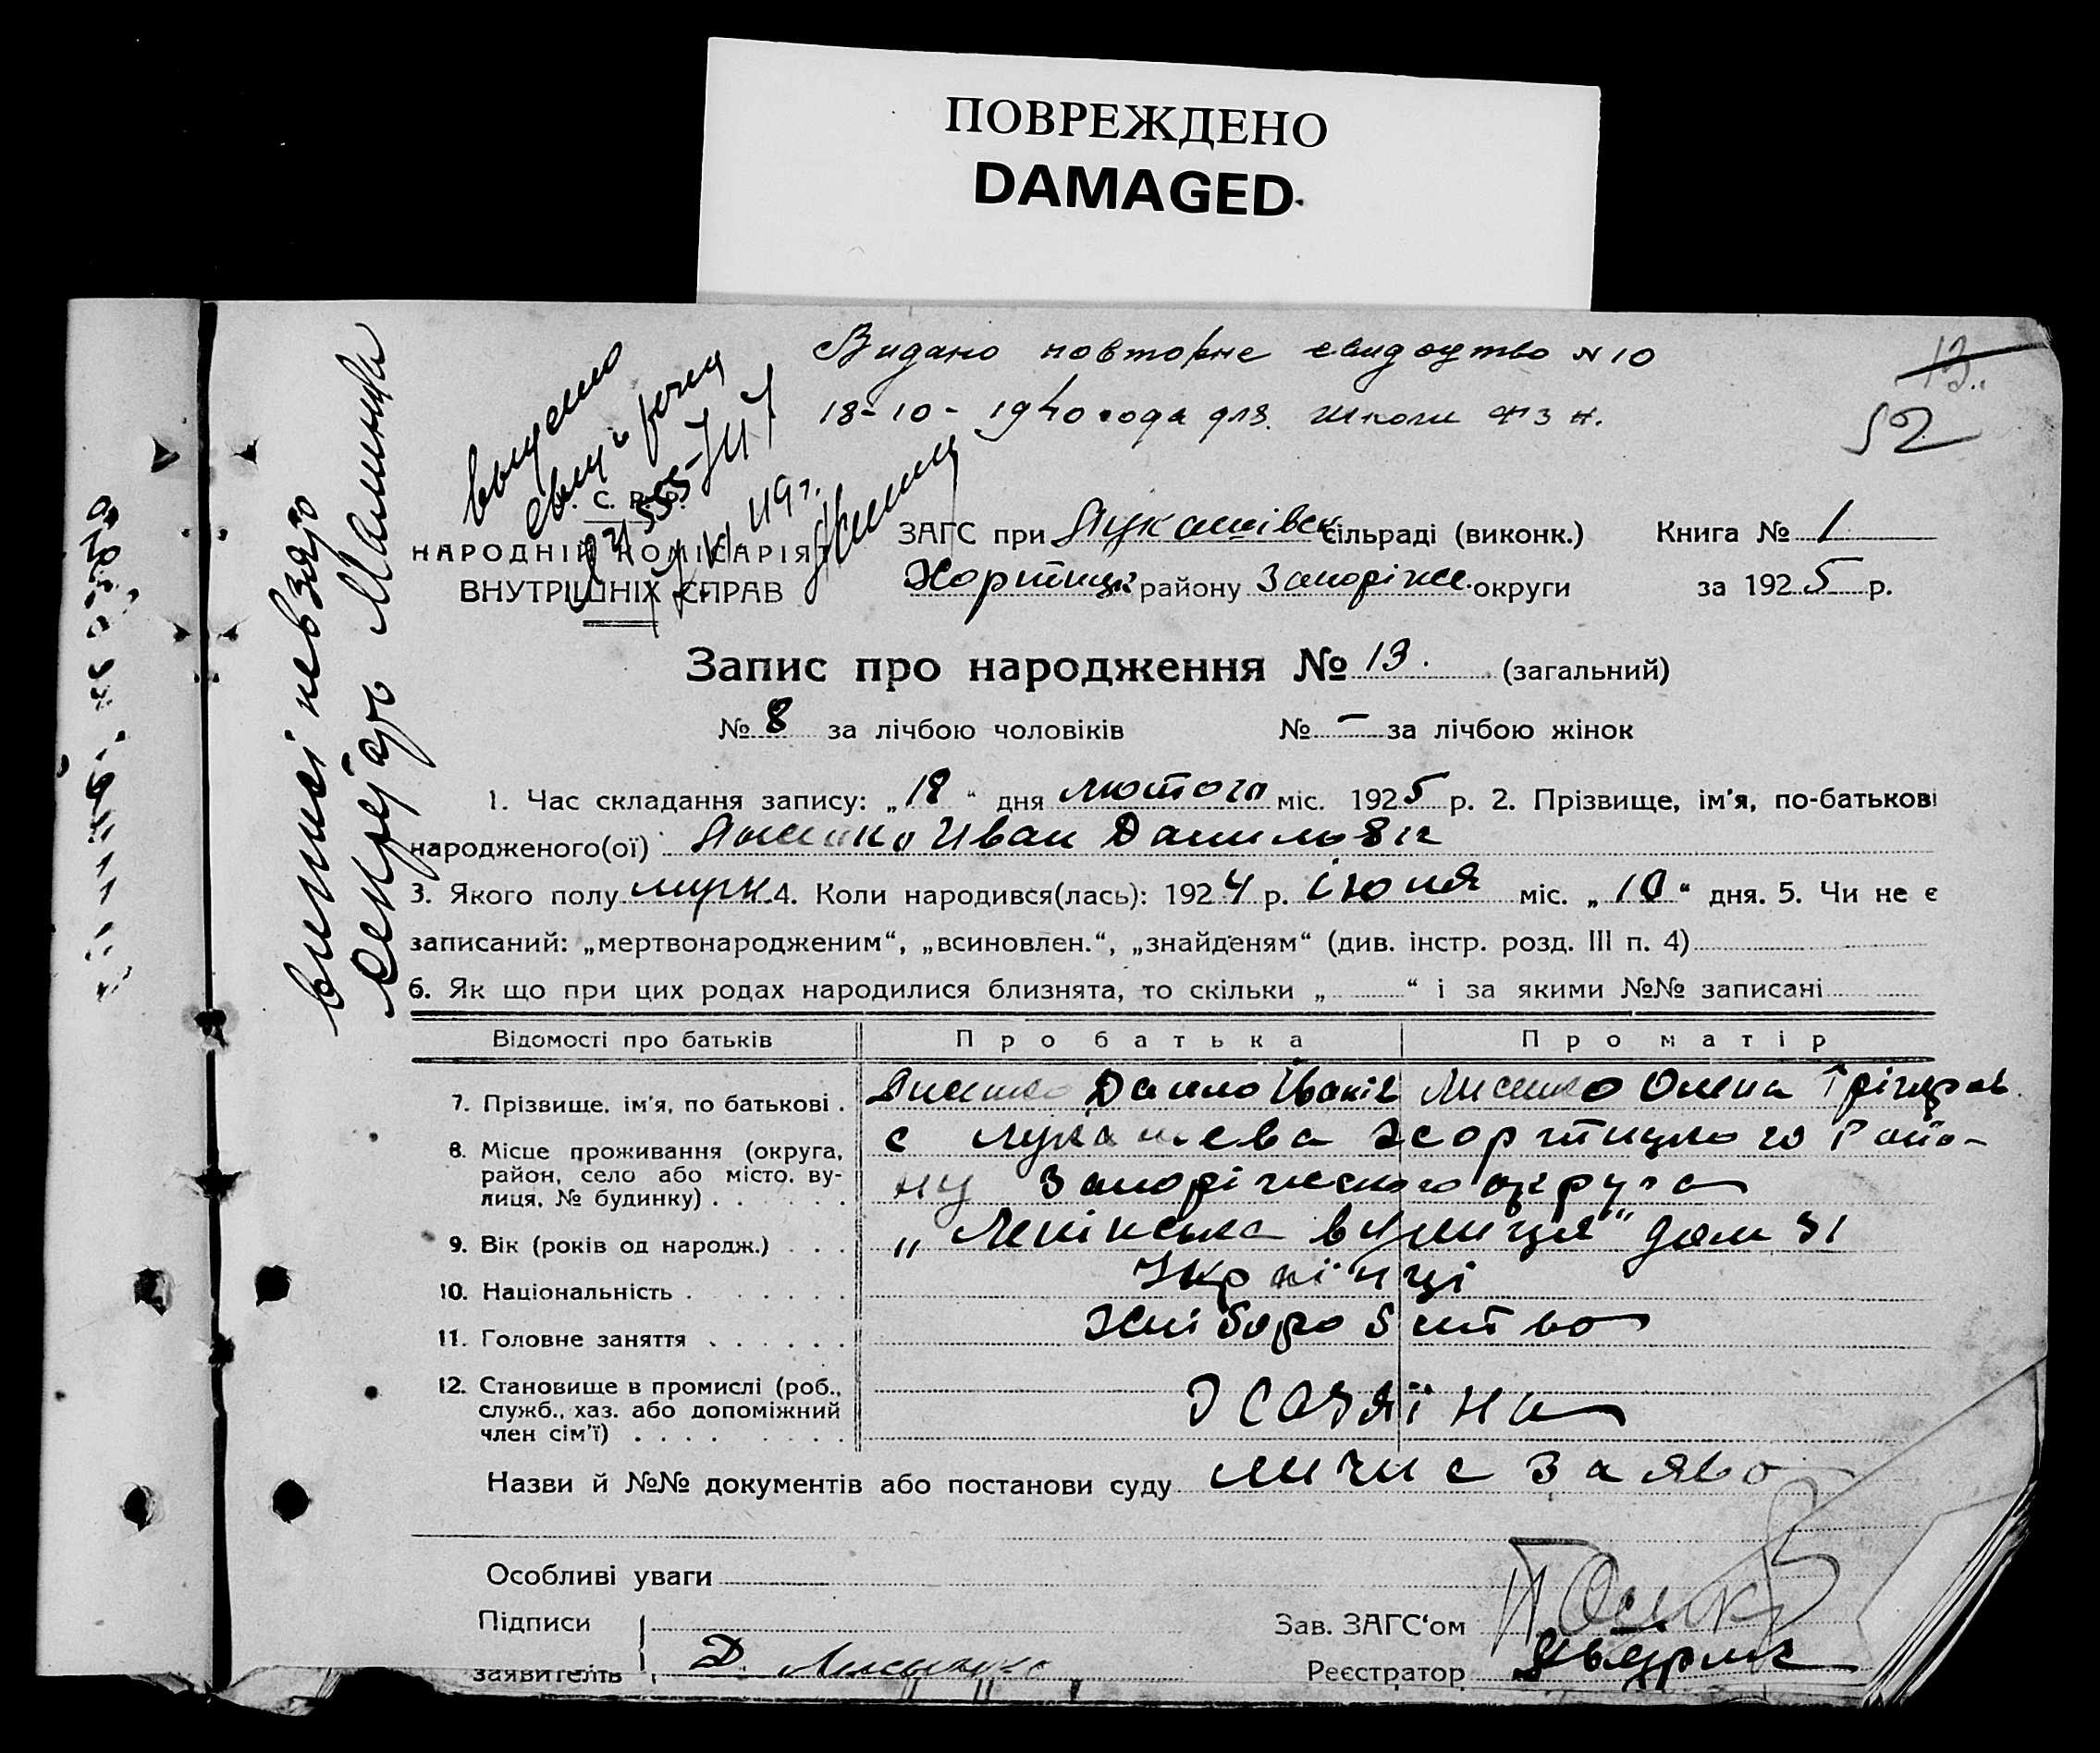 ПОВРЕЖДЕНО
DAMAGED
Видано повторне свидоцтво N 10
18-10-1940 года для школи ФЗН.
13
52
С. Р. Р.
НАРОДНІЙ КОМІСАРІЯТ
ВНУТРІШНІХ СПРАВ
ЗАГС при Лукашівск сільраді (виконк.) Книга № 1
Хортицк району Запоріжс. округи за 1925 р.
Запис про народження № 13. (загальний)
№ 8 за лічбою чоловіків № – за лічбою жінок
1. Час складання запису: „18“ дня лютого міс. 1925 р. 2. Прізвище, ім'я, по-батькові
народженого(ої) Иван Данилович
3. Якого полу мужч. 4. Коли народився(лась): 1924 р. іюля міс. „10“ дня. 5. Чи не є
записаний: „мертвонародженим“, „всиновлен.“, „знайденям“ (див. інстр. розд. III п. 4)
6. Як що при цих родах народилися близнята, то скільки „ “ і за якими №№ записані
Відомості про батьків Про батька Про матір
7. Прізвище, ім'я, по батькові . Лисенко Данило Іванів Лисенко Олена Грігоров.
8. Місце проживання (округа, район, село або місто, вулиця, № будинку) с Лукашева Хортицького Райо-
ну Запоріжского округа
9. Вік (років од народж.) . . . „Ленінська вулиця“ дом 31
10. Національність . Украінці
11. Головне заняття . Хлібороб
12. Становище в промислі (роб., служб., хаз. або допоміжний член сім'ї) . Хазяїна
Назви й №№ документів або постанови суду заяво
Особливі уваги
Підписи
заявителів Д. Лисенко
Зав. ЗАГС'ом
Реєстратор